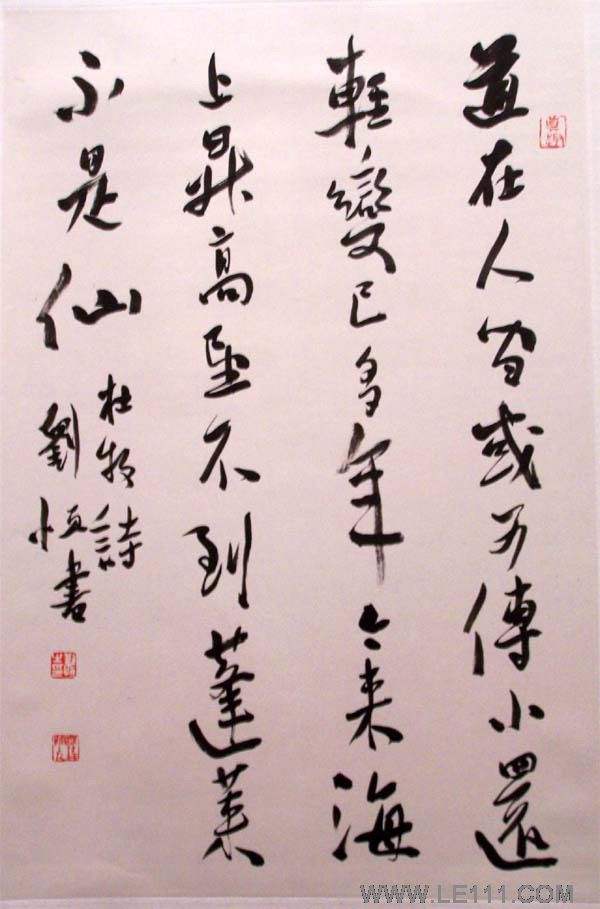 道在人间或可傳小還
輕變已多年今来海
上昇高望不到蓬莱
不是仙
杜牧詩
劉恒書
WWW.LE111.COM